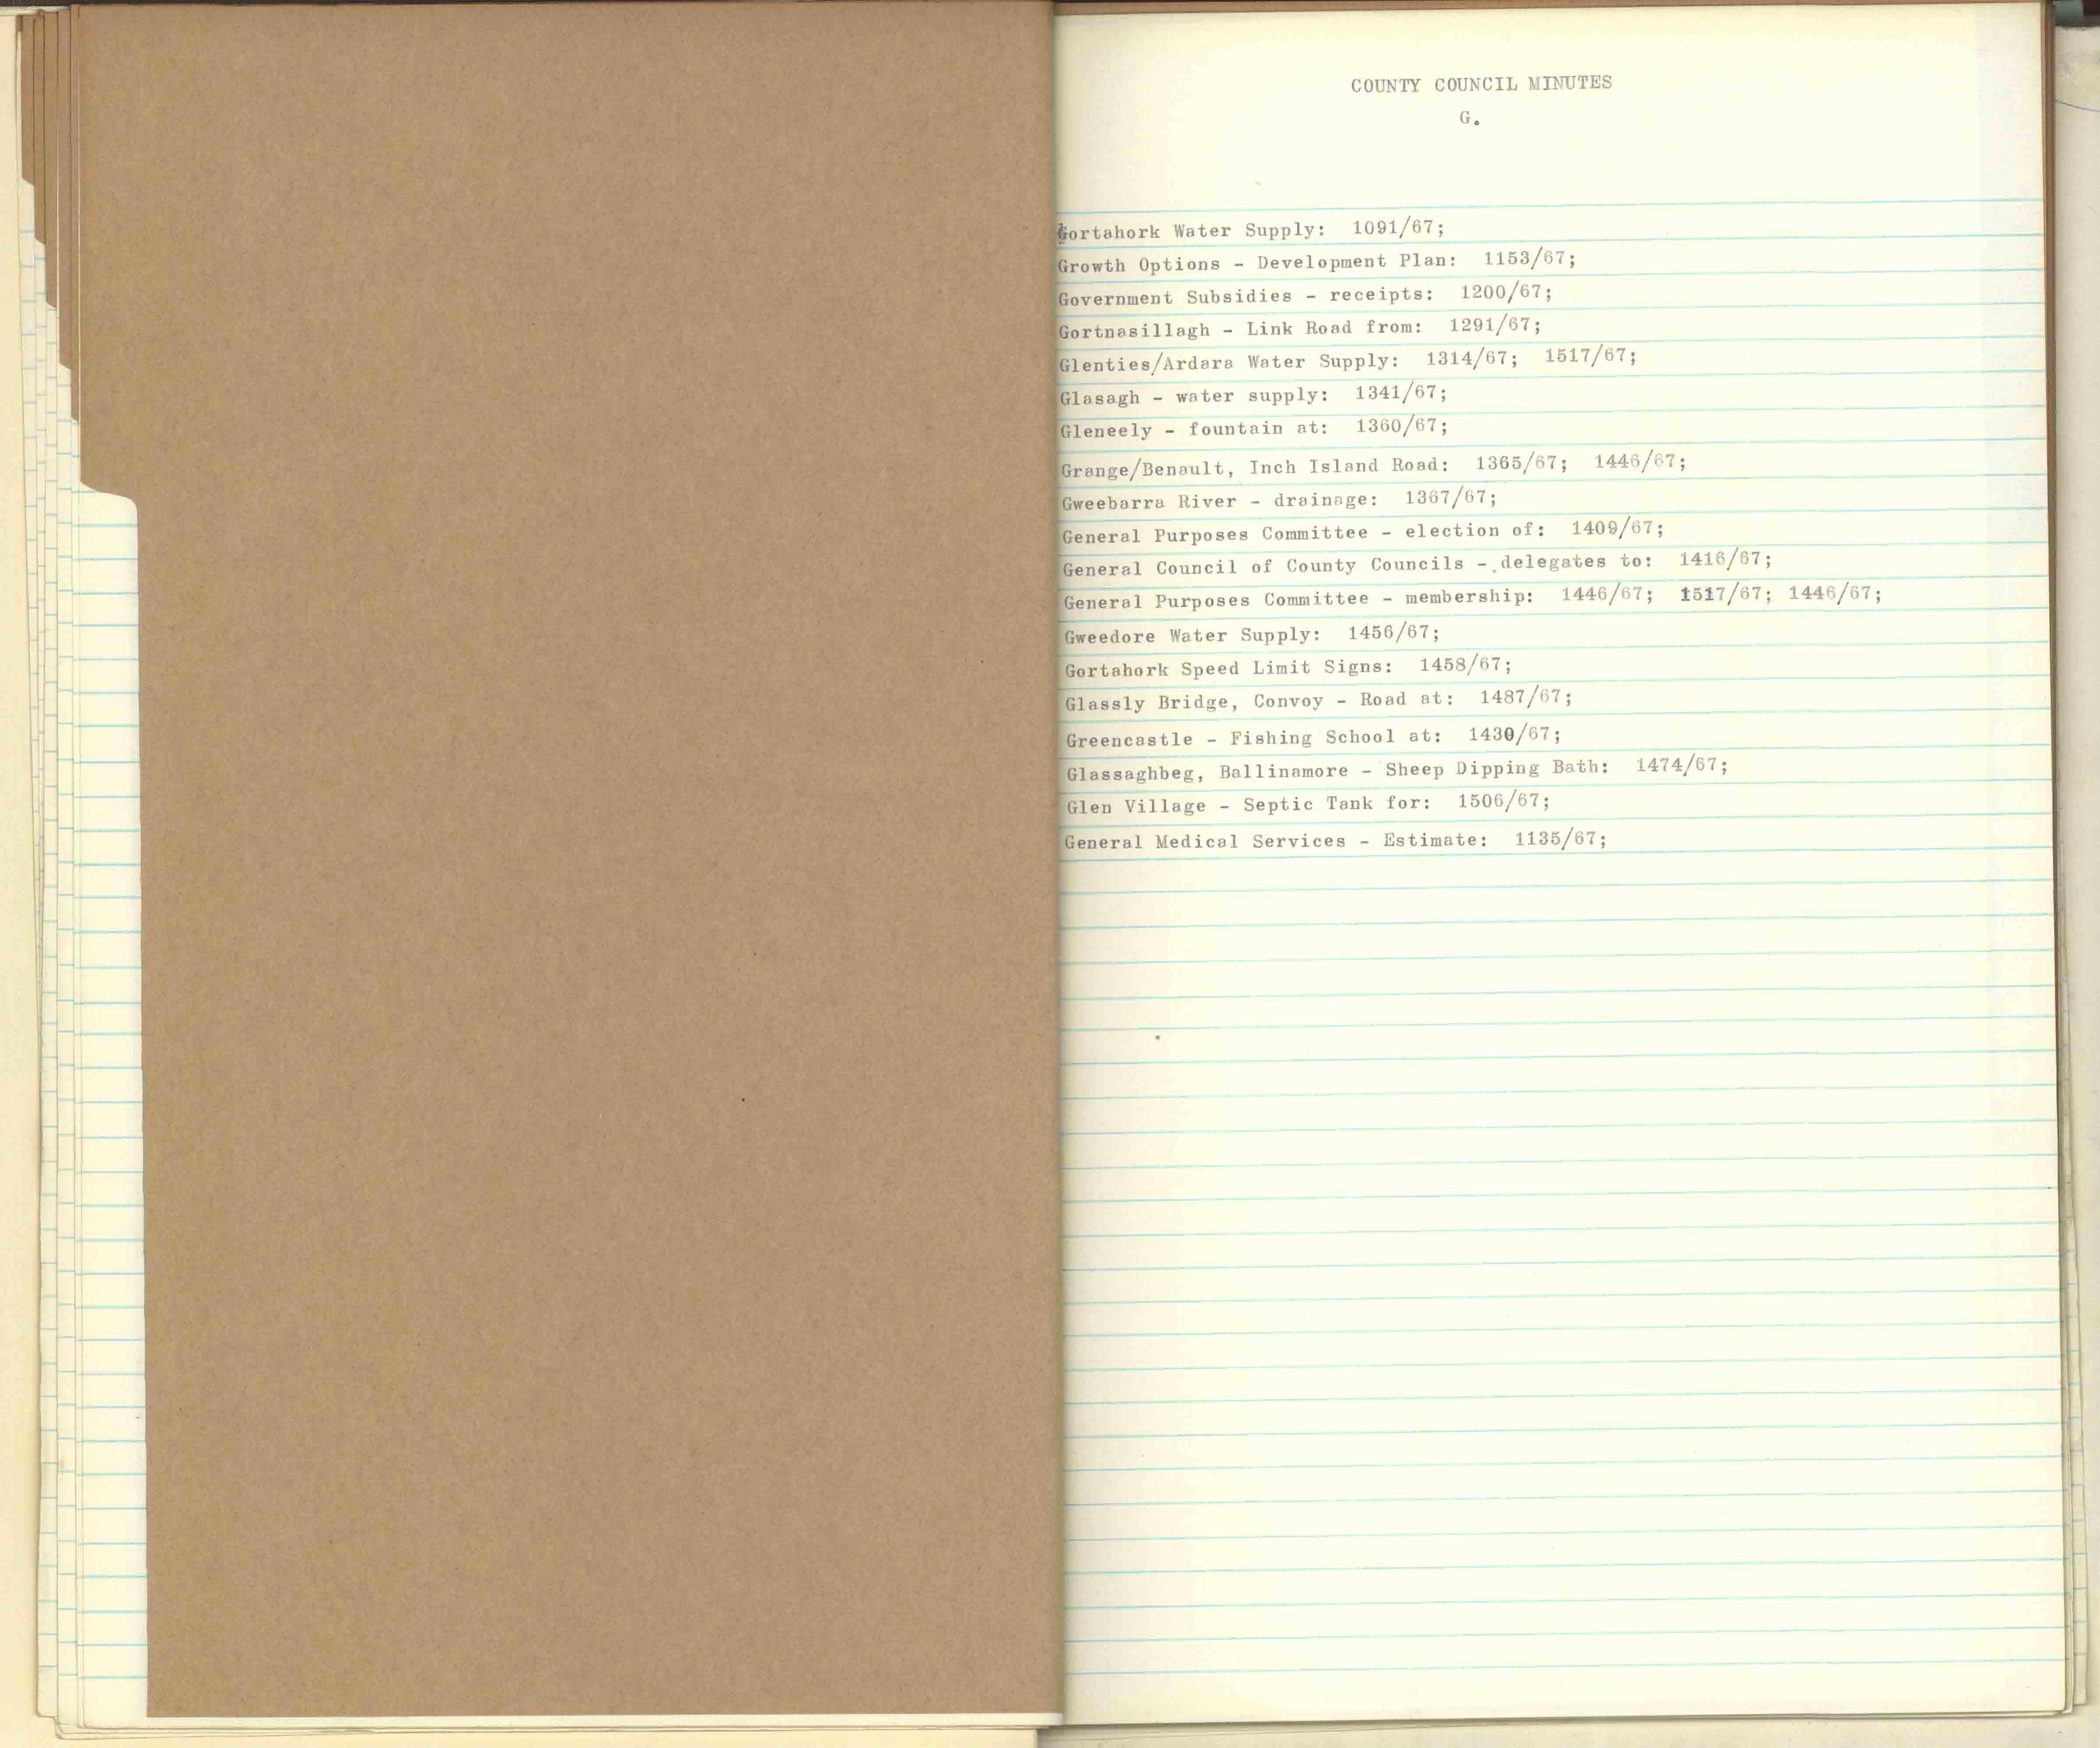 COUNTY COUNCIL MINUTES
G.
Gortahork Water Supply: 1091/67;
Growth Options - Development Plan: 1153/67;
Government Subsidies - receipts: 1200/67;
Gortnasillagh - Link Road from: 1291/67;
Glenties/Ardara Water Supply: 1314/67; 1517/67;
Glasagh - water supply: 1341/67;
Gleneely - fountain at: 1360/67;
Grange/Benault, Inch Island Road: 1365/67; 1446/67;
Gweebarra River - drainage: 1367/67;
General Purposes Committee - election of: 1409/67;
General Council of County Councils - delegates to: 1416/67;
General Purposes Committee - membership: 1446/67; 1517/67; 1446/67;
Gweedore Water Supply: 1456/67;
Gortahork Speed Limit Signs: 1458/67;
Glassly Bridge, Convoy - Road at: 1487/67;
Greencastle - Fishing School at: 1430/67;
Glassaghbeg, Ballinamore - Sheep Dipping Bath: 1474/67;
Glen Village - Septic Tank for: 1506/67;
General Medical Services - Estimate: 1135/67;